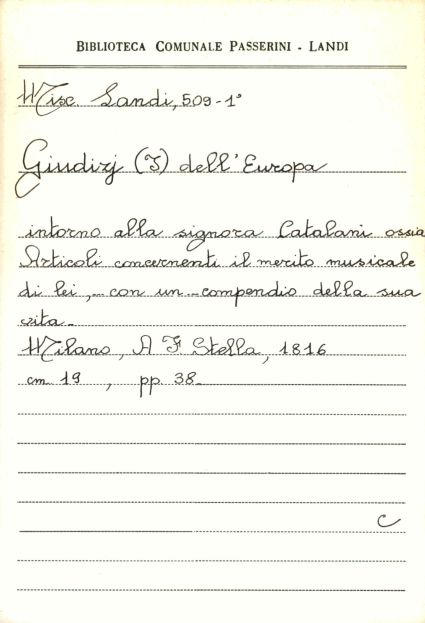 BIBLIOTECA COMUNALE PASSERINI - LANDI
Misc. Landi, 509-1°
Giudizj (I) dell'Europa
intorno alla signora Catalani ossia
Articoli concernenti il merito musicale
di lei, con un compendio della sua
vita.
Milano, A F Stella, 1816
cm 19 , pp. 38.
C